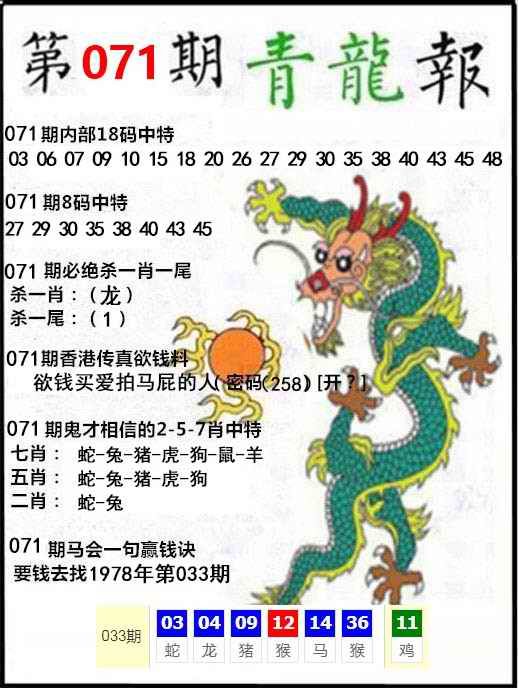 第071期青龍報
071期内部18码中特
03 06 07 09 10 15 18 20 26 27 29 30 35 38 40 43 45 48
071期8码中特
27 29 30 35 38 40 43 45
071 期必绝杀一肖一尾
杀一肖：（龙）
杀一尾：（1）
071期香港传真欲钱料
欲钱买爱拍马屁的人( 密码(258) [开？]
071期鬼才相信的2-5-7肖中特
七肖： 蛇-兔-猪-虎-狗-鼠-羊
五肖： 蛇-兔-猪-虎-狗
二肖： 蛇-兔
071 期马会一句赢钱诀
要钱去找1978年第033期
033期 03 04 09 12 14 36 11
蛇 龙 猪 猴 马 猴 鸡